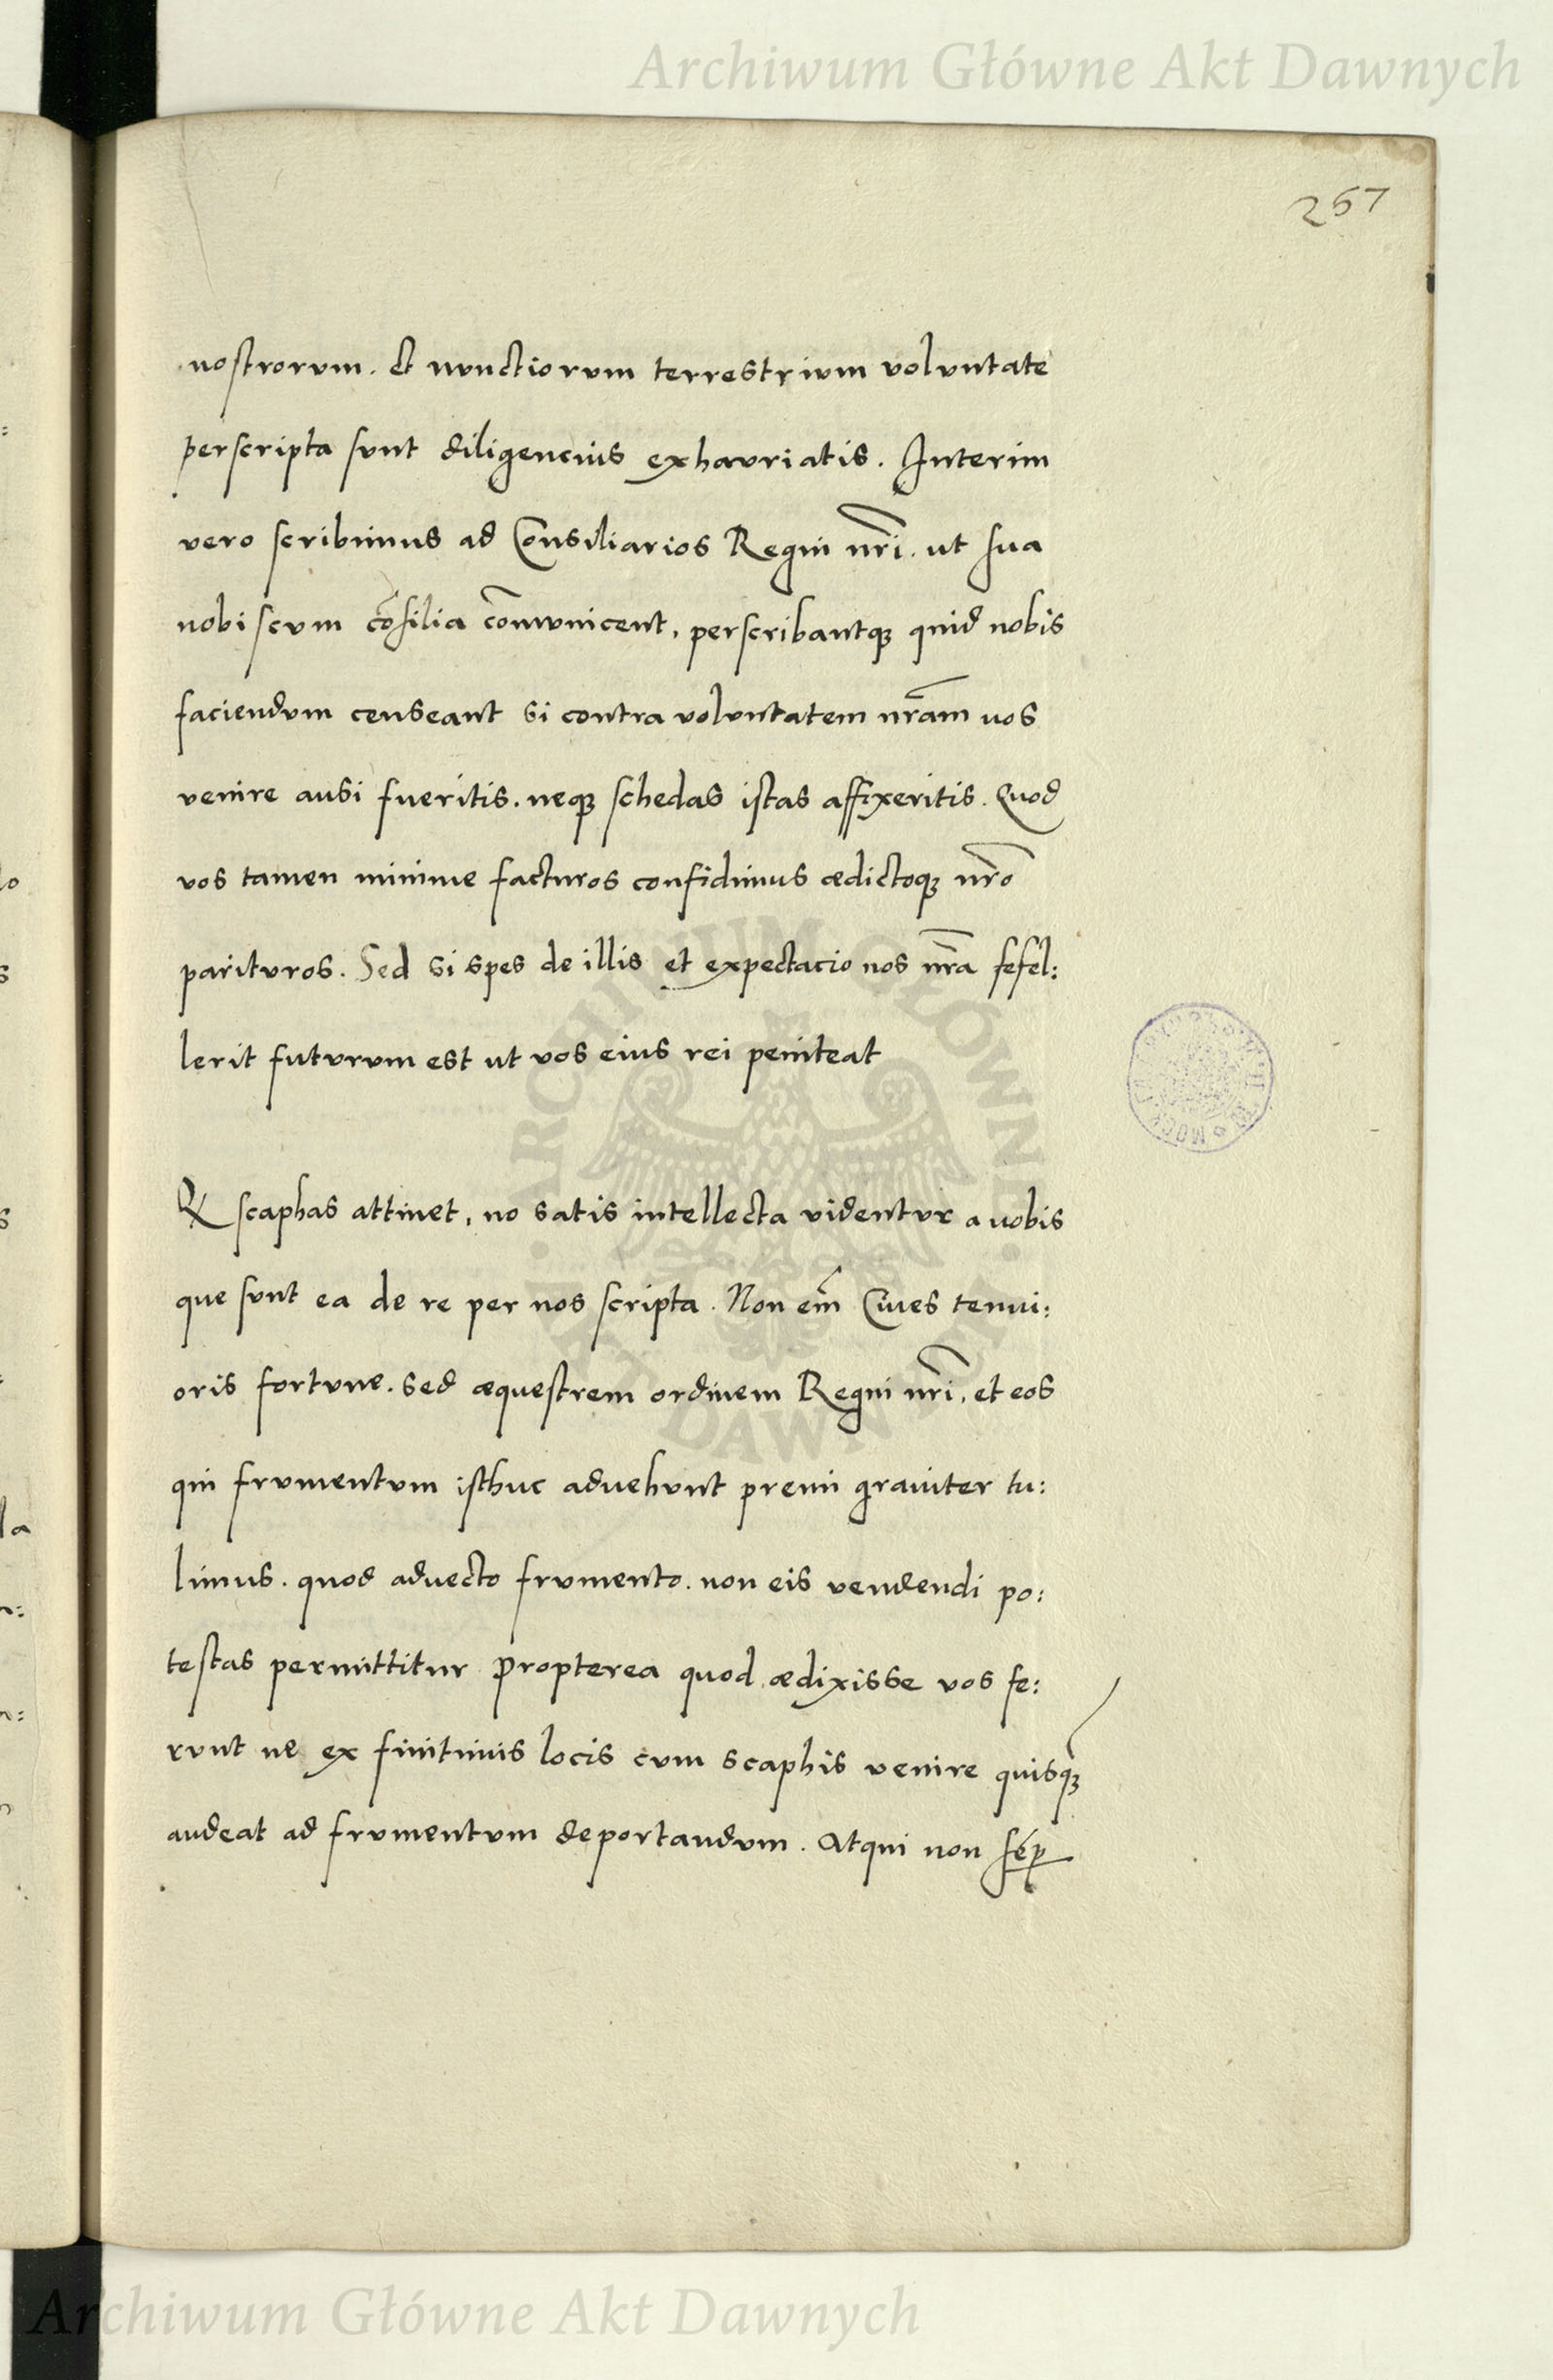 Archiwum Główne Akt Dawnych
267
nostrorum. et nunctiorum terrestrium voluntate
perscripta sunt diligencius exhauriatis. Interim
vero scribimus ad Consiliarios Regni nr̃i. ut sua
nobiscum cõsilia cõmunicent, perscribantqꝫ quid nobis
faciendum censeant si contra voluntatem nr̃am vos
venire ausi fueritis. neqꝫ schedas istas affixeritis. Quod
vos tamen minime facturos confidimus ædictoqꝫ nr̃o
parituros. Sed si spes de illis et expectacio nos nr̃a fefel:
lerit futurum est ut vos eius rei peniteat
scaphas attinet, no satis intellecta videntur a vobis
que sunt ea de re per nos scripta. Non em̃ Cives tenui:
oris fortune. sed æquestrem ordinem Regni nr̃i, et eos
qui frumentum isthuc advehunt premi graviter tu:
limus. quod advecto frumento. non eis vendendi po:
testas permittitur propterea quod ædixisse vos fe:
runt ne ex finitimis locis cum scaphis venire quisqꝫ
audeat ad frumentum deportandum. Atqui non sẽp
Archiwum Główne Akt Dawnych